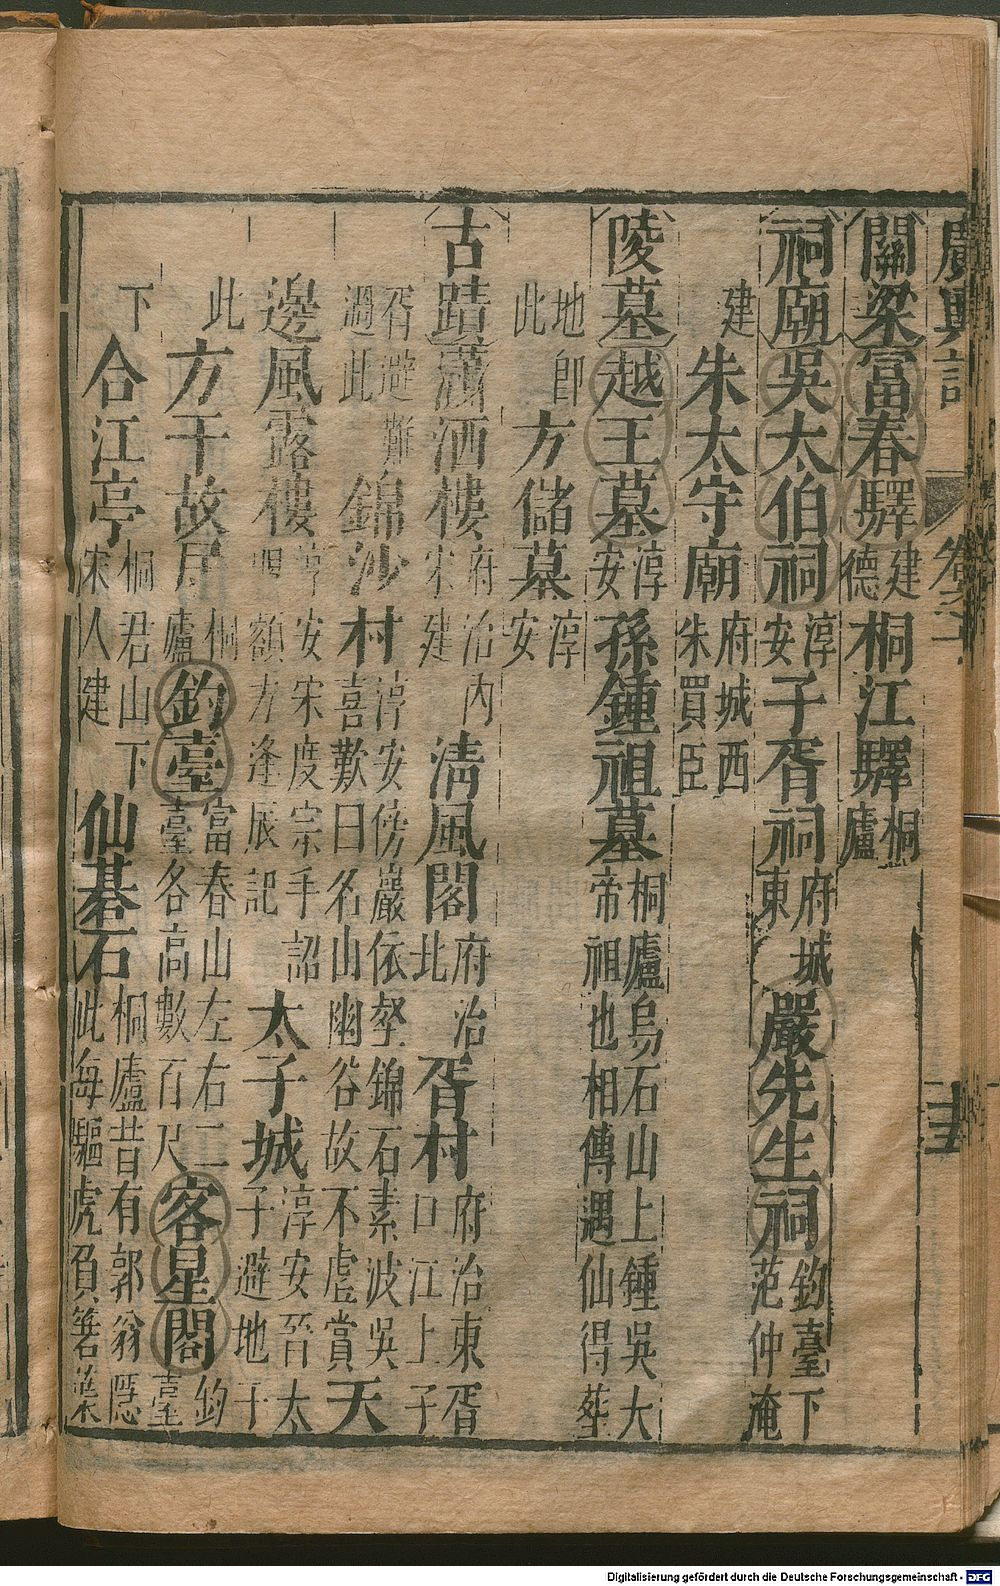 廣輿記 卷之
關梁富春驛建德桐江驛桐廬
祠廟吳太伯祠淳安子胥祠府城東嚴先生祠釣臺下范仲淹
建朱太守廟府城西朱買臣
陵墓越王墓淳安孫鍾祖墓桐廬烏石山上鍾吳大帝祖也相傳遇仙得葬
地即此方儲墓淳安
古蹟瀟洒樓府治內宋建清風閣府治北胥村府治東胥口江上子
胥避難過此錦沙村淳安傍巖依壑錦石素波吳喜歎曰名山幽谷故不虛賞天
邊風露樓淳安宋度宗手詔額方逢辰記太子城淳安晉太子避地于
此方干故居桐廬釣臺富春山左右二臺各高數百尺客星閣釣臺
下合江亭桐君山下宋人建仙碁石桐廬昔有郭翁隱此每驅虎負箬葉
Digitalisierung gefördert durch die Deutsche Forschungsgemeinschaft - DFG